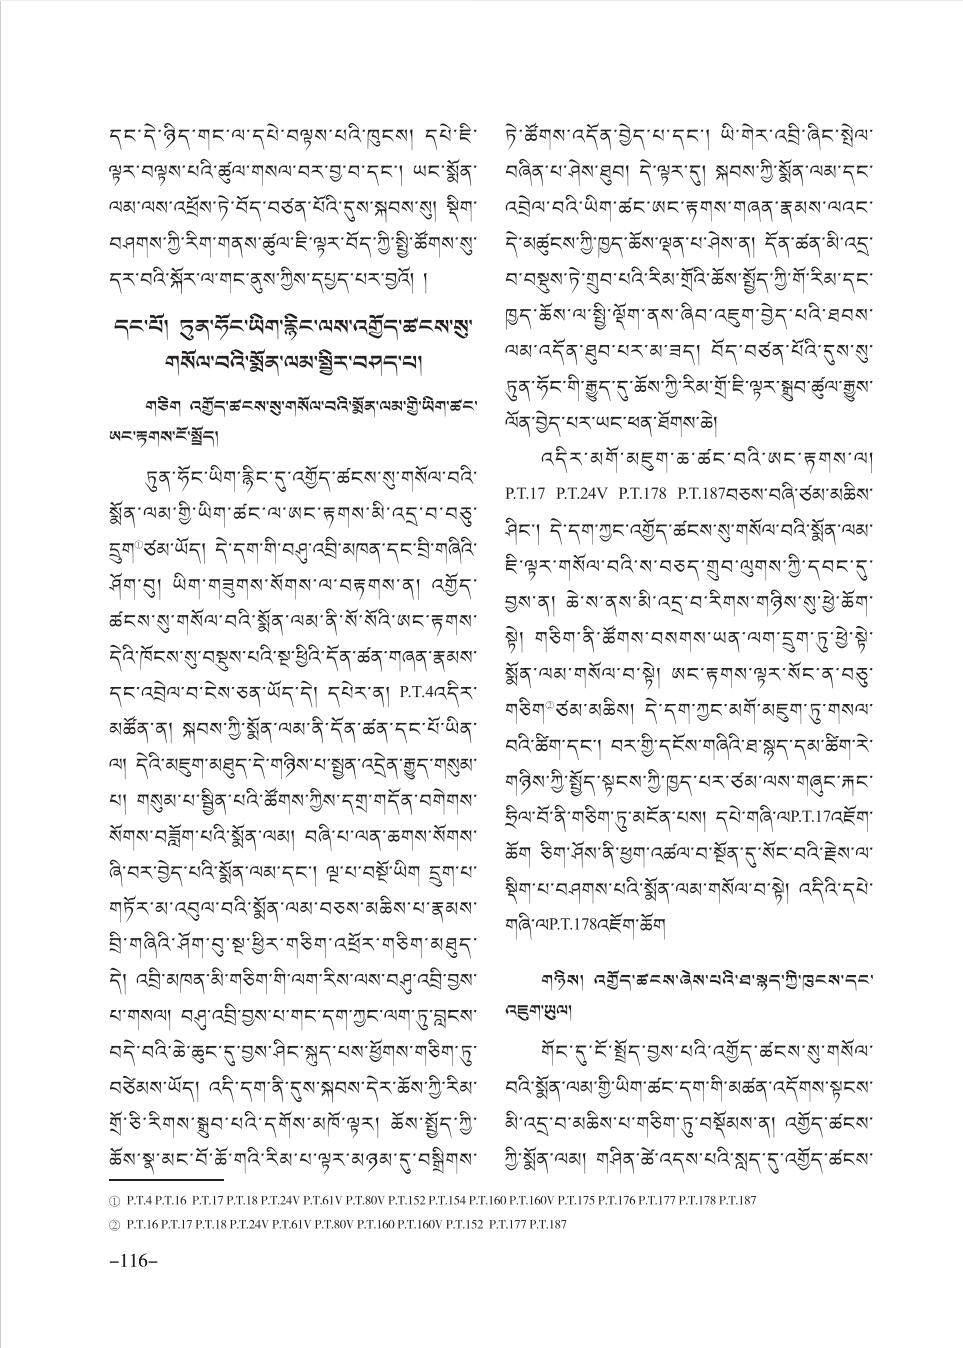 དང་དེ་ཉིད་གང་ལ་དཔེ་བལྟས་པའི་ཁུངས། དཔེ་ཇི་
ལྟར་བལྟས་པའི་ཚུལ་གསལ་བར་བྱ་བ་དང་། ཡང་སྨོན་
ལམ་ལས་འཕྲོས་ཏེ་བོད་བཙན་པོའི་དུས་སྐབས་སུ། སྡིག་
བཤགས་ཀྱི་རིག་གནས་ཚུལ་ཇི་ལྟར་བོད་ཀྱི་སྤྱི་ཚོགས་སུ་
དར་བའི་སྐོར་ལ་གང་ནུས་ཀྱིས་དཔྱད་པར་བྱའོ། །
དང་པོ། ཏུན་ཧོང་ཡིག་རྙིང་ལས་འགྱོད་ཚངས་སུ་
གསོལ་བའི་སྨོན་ལམ་སྤྱིར་བཤད་པ།
གཅིག འགྱོད་ཚངས་སུ་གསོལ་བའི་སྨོན་ལམ་གྱི་ཡིག་ཚང་
ཨང་རྟགས་ངོ་སྤྲོད།
ཏུན་ཧོང་ཡིག་རྙིང་དུ་འགྱོད་ཚངས་སུ་གསོལ་བའི་
སྨོན་ལམ་གྱི་ཡིག་ཚང་ལ་ཨང་རྟགས་མི་འདྲ་བ་བཅུ་
དྲུག①ཙམ་ཡོད། དེ་དག་གི་བཤུ་འབྲི་མཁན་དང་བྲི་གཞིའི་
ཤོག་བུ། ཡིག་གཟུགས་སོགས་ལ་བརྟགས་ན། འགྱོད་
ཚངས་སུ་གསོལ་བའི་སྨོན་ལམ་ནི་སོ་སོའི་ཨང་རྟགས་
དེའི་ཁོངས་སུ་བསྡུས་པའི་སྔ་ཕྱིའི་དོན་ཚན་གཞན་རྣམས་
དང་འབྲེལ་བ་ངེས་ཅན་ཡོད་དེ། དཔེར་ན། P.T.4འདིར་
མཚོན་ན། སྐབས་ཀྱི་སྨོན་ལམ་ནི་དོན་ཚན་དང་པོ་ཡིན་
ལ། དེའི་མཇུག་མཐུད་དེ་གཉིས་པ་སྤྱན་འདྲེན་རྒྱུད་གསུམ་
པ། གསུམ་པ་སྦྱིན་པའི་ཚོགས་ཀྱིས་དགྲ་གདོན་བགེགས་
སོགས་བཟློག་པའི་སྨོན་ལམ། བཞི་པ་ལན་ཆགས་སོགས་
ཞི་བར་བྱེད་པའི་སྨོན་ལམ་དང་། ལྔ་པ་བསྔོ་ཡིག དྲུག་པ་
གཏོར་མ་འབུལ་བའི་སྨོན་ལམ་བཅས་མཆིས་པ་རྣམས་
བྲི་གཞིའི་ཤོག་བུ་སྔ་ཕྱིར་གཅིག་འཕྲོར་གཅིག་མཐུད་
དེ། འབྲི་མཁན་མི་གཅིག་གི་ལག་རིས་ལས་བཤུ་འབྲི་བྱས་
པ་གསལ། བཤུ་འབྲི་བྱས་པ་གང་དག་ཀྱང་ལག་ཏུ་བླངས་
བདེ་བའི་ཆེ་ཆུང་དུ་བྱས་ཤིང་སྐུད་པས་ཕྱོགས་གཅིག་ཏུ་
བཙེམས་ཡོད། འདི་དག་ནི་དུས་སྐབས་དེར་ཆོས་ཀྱི་རིམ་
གྲོ་ཅི་རིགས་སྒྲུབ་པའི་དགོས་མཁོ་ལྟར། ཆོས་སྤྱོད་ཀྱི་
ཆོས་སྣ་མང་པོ་ཆོ་གའི་རིམ་པ་ལྟར་མཉམ་དུ་བསྒྲིགས་
ཏེ་ཚོགས་འདོན་བྱེད་པ་དང་། ཡི་གེར་འབྲི་ཞིང་སྤེལ་
བཞིན་པ་ཤེས་ཐུབ། དེ་ལྟར་དུ། སྐབས་ཀྱི་སྨོན་ལམ་དང་
འབྲེལ་བའི་ཡིག་ཚང་ཨང་རྟགས་གཞན་རྣམས་ལའང་
དེ་མཚུངས་ཀྱི་ཁྱད་ཆོས་ལྡན་པ་ཤེས་ན། དོན་ཚན་མི་འདྲ་
བ་བསྡུས་ཏེ་གྲུབ་པའི་རིམ་གྲོའི་ཆོས་སྤྱོད་ཀྱི་གོ་རིམ་དང་
ཁྱད་ཆོས་ལ་སྤྱི་ལྡོག་ནས་ཞིབ་འཇུག་བྱེད་པའི་ཐབས་
ལམ་འདོན་ཐུབ་པར་མ་ཟད། བོད་བཙན་པོའི་དུས་སུ་
ཏུན་ཧོང་གི་རྒྱུད་དུ་ཆོས་ཀྱི་རིམ་གྲོ་ཇི་ལྟར་སྒྲུབ་ཚུལ་རྒྱུས་
ལོན་བྱེད་པར་ཡང་ཕན་ཐོགས་ཆེ།
འདིར་མགོ་མཇུག་ཆ་ཚང་བའི་ཨང་རྟགས་ལ།
P.T.17 P.T.24V P.T.178 P.T.187བཅས་བཞི་ཙམ་མཆིས་
ཤིང་། དེ་དག་ཀྱང་འགྱོད་ཚངས་སུ་གསོལ་བའི་སྨོན་ལམ་
ཇི་ལྟར་གསོལ་བའི་ས་བཅད་གྲུབ་ལུགས་ཀྱི་དབང་དུ་
བྱས་ན། ཆེ་ས་ནས་མི་འདྲ་བ་རིགས་གཉིས་སུ་ཕྱེ་ཆོག་
སྟེ། གཅིག་ནི་ཚོགས་བསགས་ཡན་ལག་དྲུག་ཏུ་ཕྱེ་སྟེ་
སྨོན་ལམ་གསོལ་བ་སྟེ། ཨང་རྟགས་ལྟར་སོང་ན་བཅུ་
གཅིག②ཙམ་མཆིས། དེ་དག་ཀྱང་མགོ་མཇུག་ཏུ་གསལ་
བའི་ཚིག་དང་། བར་གྱི་དངོས་གཞིའི་ཐ་སྙད་དམ་ཚིག་རེ་
གཉིས་ཀྱི་སྤྱོད་སྟངས་ཀྱི་ཁྱད་པར་ཙམ་ལས་གཞུང་རྐང་
ཧྲིལ་བོ་ནི་གཅིག་ཏུ་མངོན་པས། དཔེ་གཞི་ལP.T.17འཇོག་
ཆོག ཅིག་ཤོས་ནི་ཕྱག་འཚལ་བ་སྔོན་དུ་སོང་བའི་རྗེས་ལ་
སྡིག་པ་བཤགས་པའི་སྨོན་ལམ་གསོལ་བ་སྟེ། འདིའི་དཔེ་
གཞི་ལP.T.178འཇོག་ཆོག
གཉིས། འགྱོད་ཚངས་ཞེས་པའི་ཐ་སྙད་ཀྱི་ཁུངས་དང་
འཇུག་ཡུལ།
གོང་དུ་ངོ་སྤྲོད་བྱས་པའི་འགྱོད་ཚངས་སུ་གསོལ་
བའི་སྨོན་ལམ་གྱི་ཡིག་ཚང་དག་གི་མཚན་འདོགས་སྟངས་
མི་འདྲ་བ་མཆིས་པ་གཅིག་ཏུ་བསྡོམས་ན། འགྱོད་ཚངས་
ཀྱི་སྨོན་ལམ། གཤིན་ཚེ་འདས་པའི་སླད་དུ་འགྱོད་ཚངས་
① P.T.4 P.T.16 P.T.17 P.T.18 P.T.24V P.T.61V P.T.80V P.T.152 P.T.154 P.T.160 P.T.160V P.T.175 P.T.176 P.T.177 P.T.178 P.T.187
② P.T.16 P.T.17 P.T.18 P.T.24V P.T.61V P.T.80V P.T.160 P.T.160V P.T.152 P.T.177 P.T.187
–116–